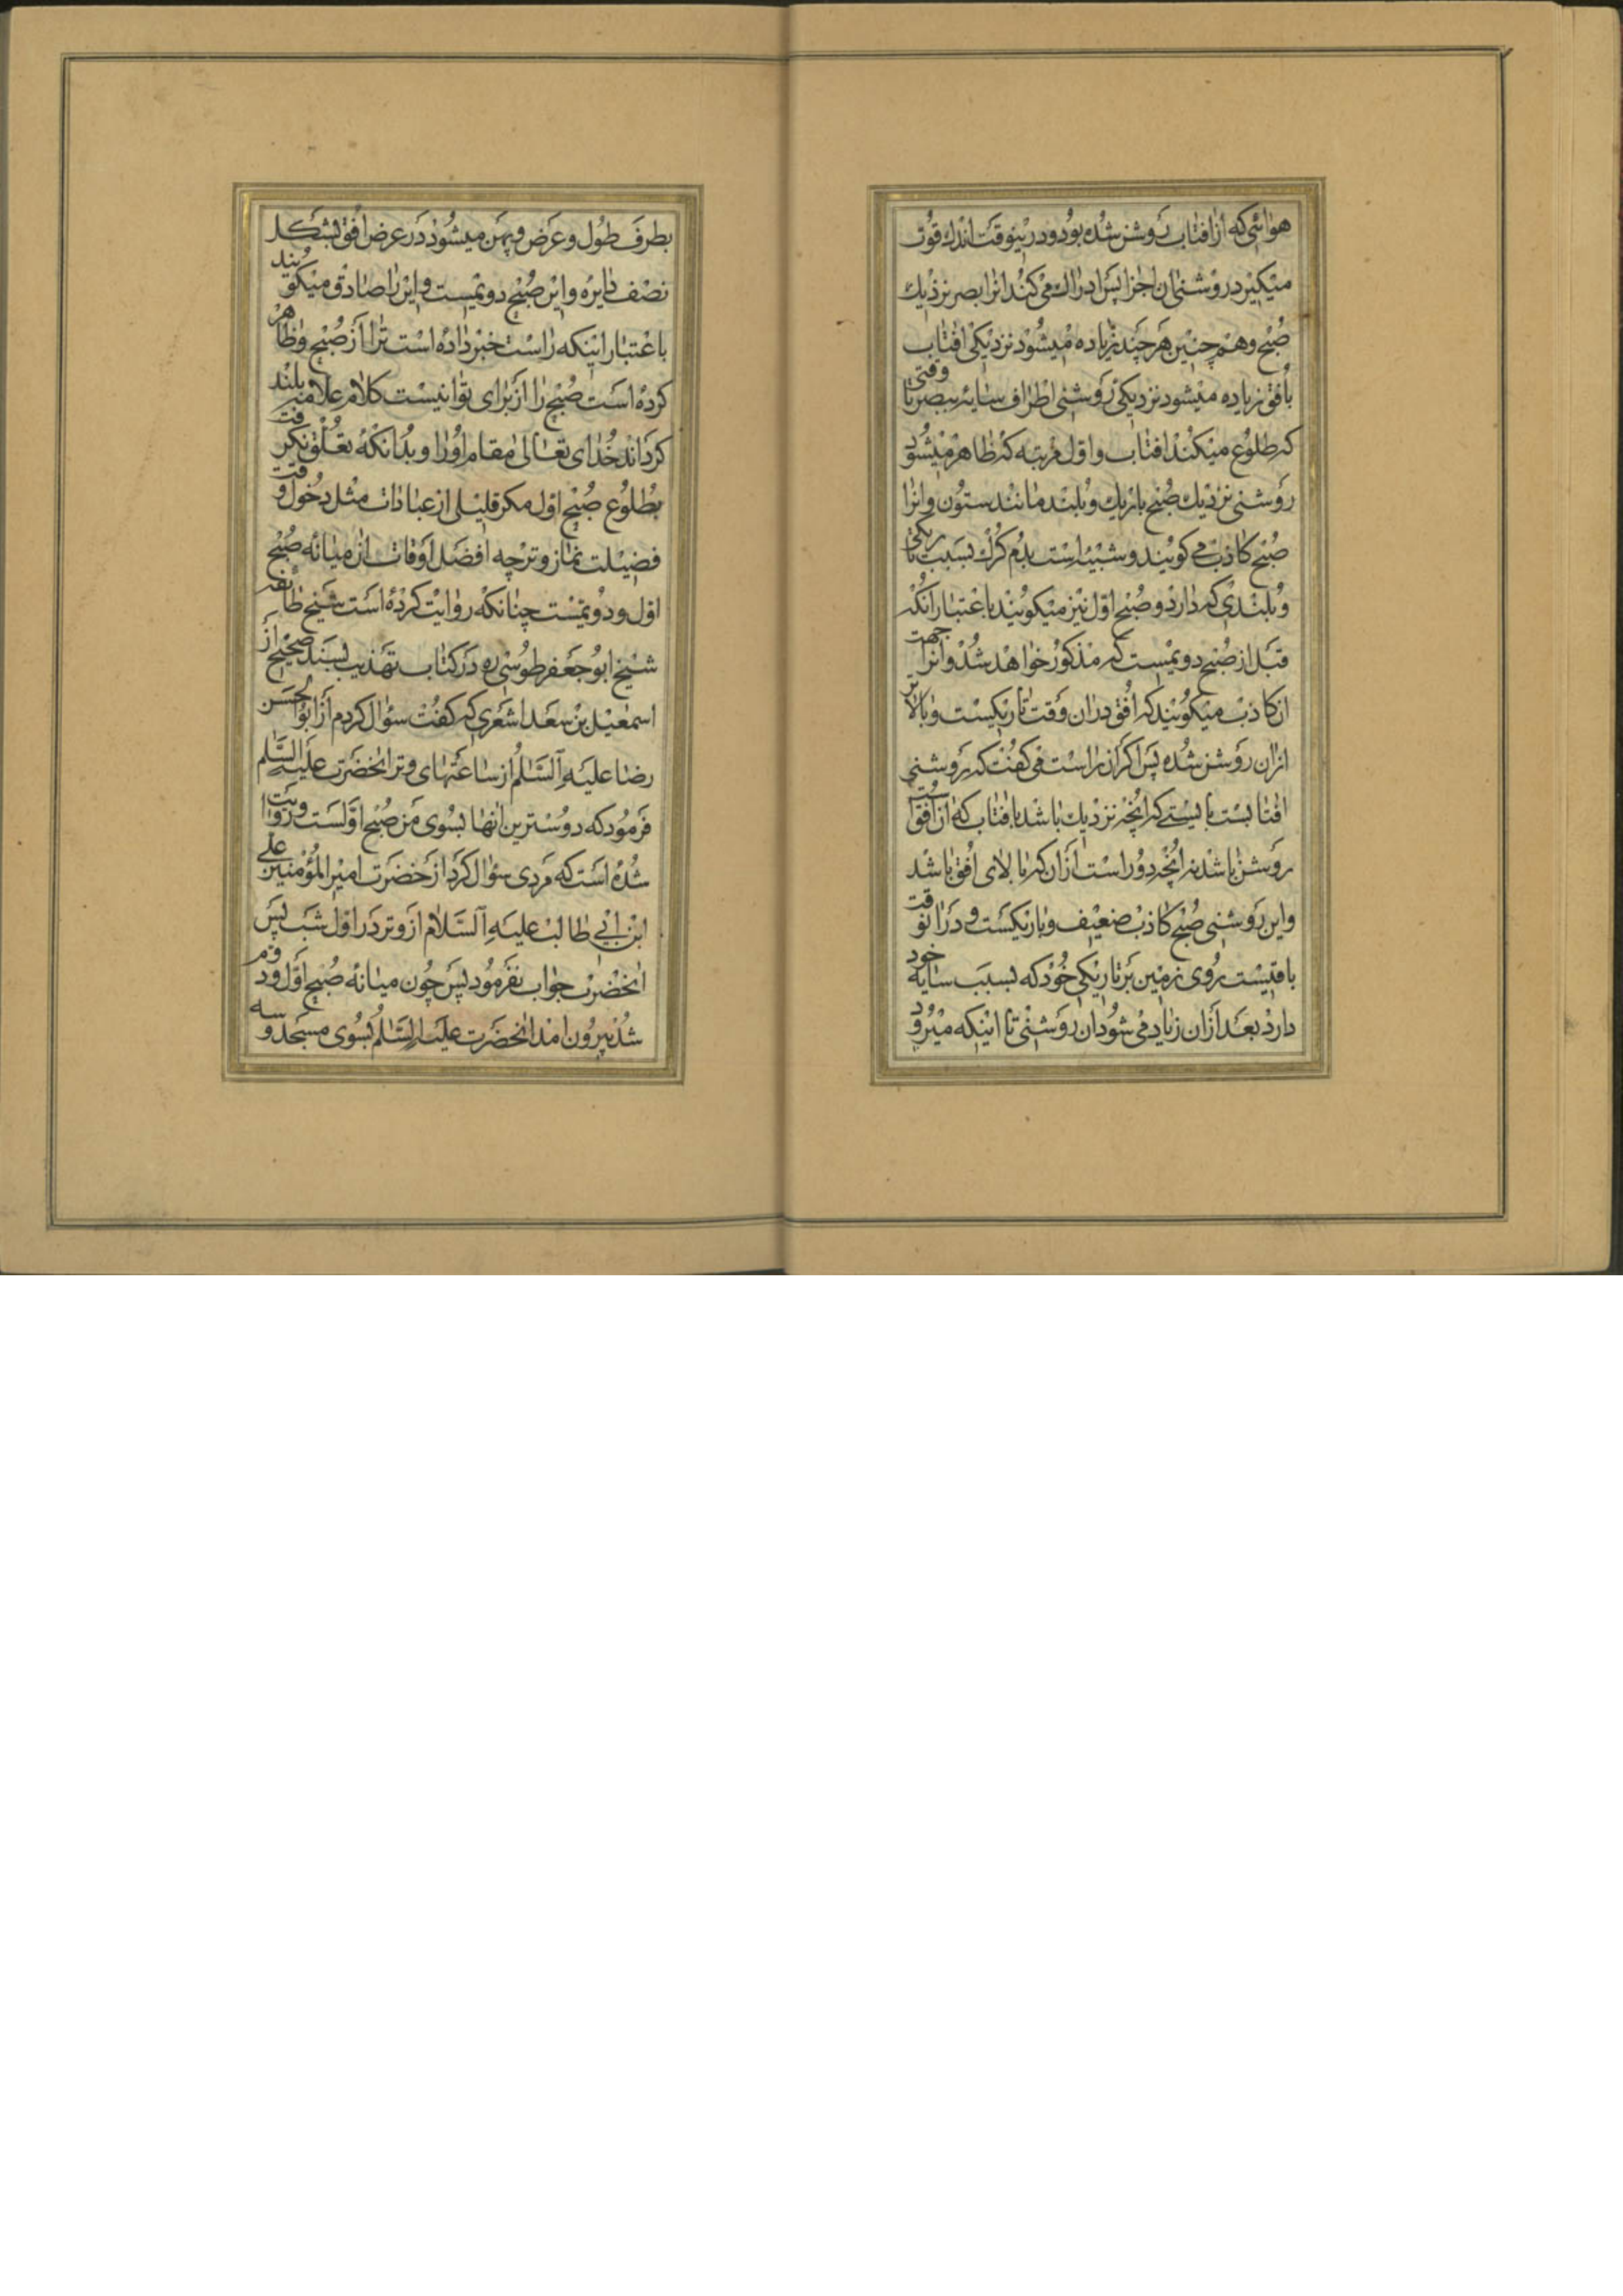 هوائی که از افتاب روشن شده بود و درینوقت اندك قوت
میکیرد روشنی ان اجزا پس ادراك می کند انرا بصر نزدیك
صبح و هم چنین هر چند زیاده میشود نزدیکی افتاب
بافق زیاده میشود نزدیکی روشنی اطراف سایه ببصر تا وقتی
که طلوع میکند افتاب و اول مرتبه که ظاهر میشود
روشنی نزدیك صبح باریك و بلند مانند ستون و انرا
صبح کاذب می کویند و شبیه است بدم کرك بسبب باریکی
و بلندی که دارد و صبح اول نیز میکویند باعتبار انکه
قبل از صبح دویمیست که مذکور خواهد شد و انرا جهت
ان کاذب میکویند که افق دران وقت تاریکیست و بالاتر
ازان روشن شده پس اکر ان راست می کفت که روشنی
افتابست بایستی که انچه نزدیك باشد بافتاب که از افقست
روشن باشد نه انچه دور است ازان که بالای افق باشد
و این روشنی صبح کاذب ضعیف و باریکست و در انوقت
باقیست روی زمین بر تاریکی خود که بسبب سایه خود
دارد بعد ازان زیاد می شود ان روشنی تا اینکه میرود
بطرف طول و عرض و پهن میشود در عرض افق بشکل
نصف دایره و این صبح دویمیست و این را صادق میکویند
باعتبار اینکه راست خبر داده است ترا از صبح و ظاهر
کرده است صبح را از برای تو اینست کلام علامه بلند
کرداند خدای تعالی مقام او را و بدانکه تعلق نکرفت
بطلوع صبح اول مکر قلیلی از عبادات مثل دخول وقت
فضیلت نماز وتر چه افضل اوقات ان میانه صبح
اول و دویمست چنانکه روایت کرده است شیخ طائفه
شیخ ابو جعفر طوسی ره در کتاب تهذیب بسند صحیح از
اسمعیل بن سعد اشعری که کفت سؤال کردم از ابو الحسن
رضا علیه السلم از ساعتهای وتر انحضرت علیه السلم
فرمود که دوسترین انها بسوی من صبح اولست و روایت
شده است که مردی سؤال کرد از حضرت امیر المؤمنین علی
ابن ابی طالب علیه السلام از وتر در اول شب پس
انحضرت جواب نفرمود پس چون میانه صبح اول و دوم
شد بیرون امد انحضرت علیه السلم بسوی مسجد و سه